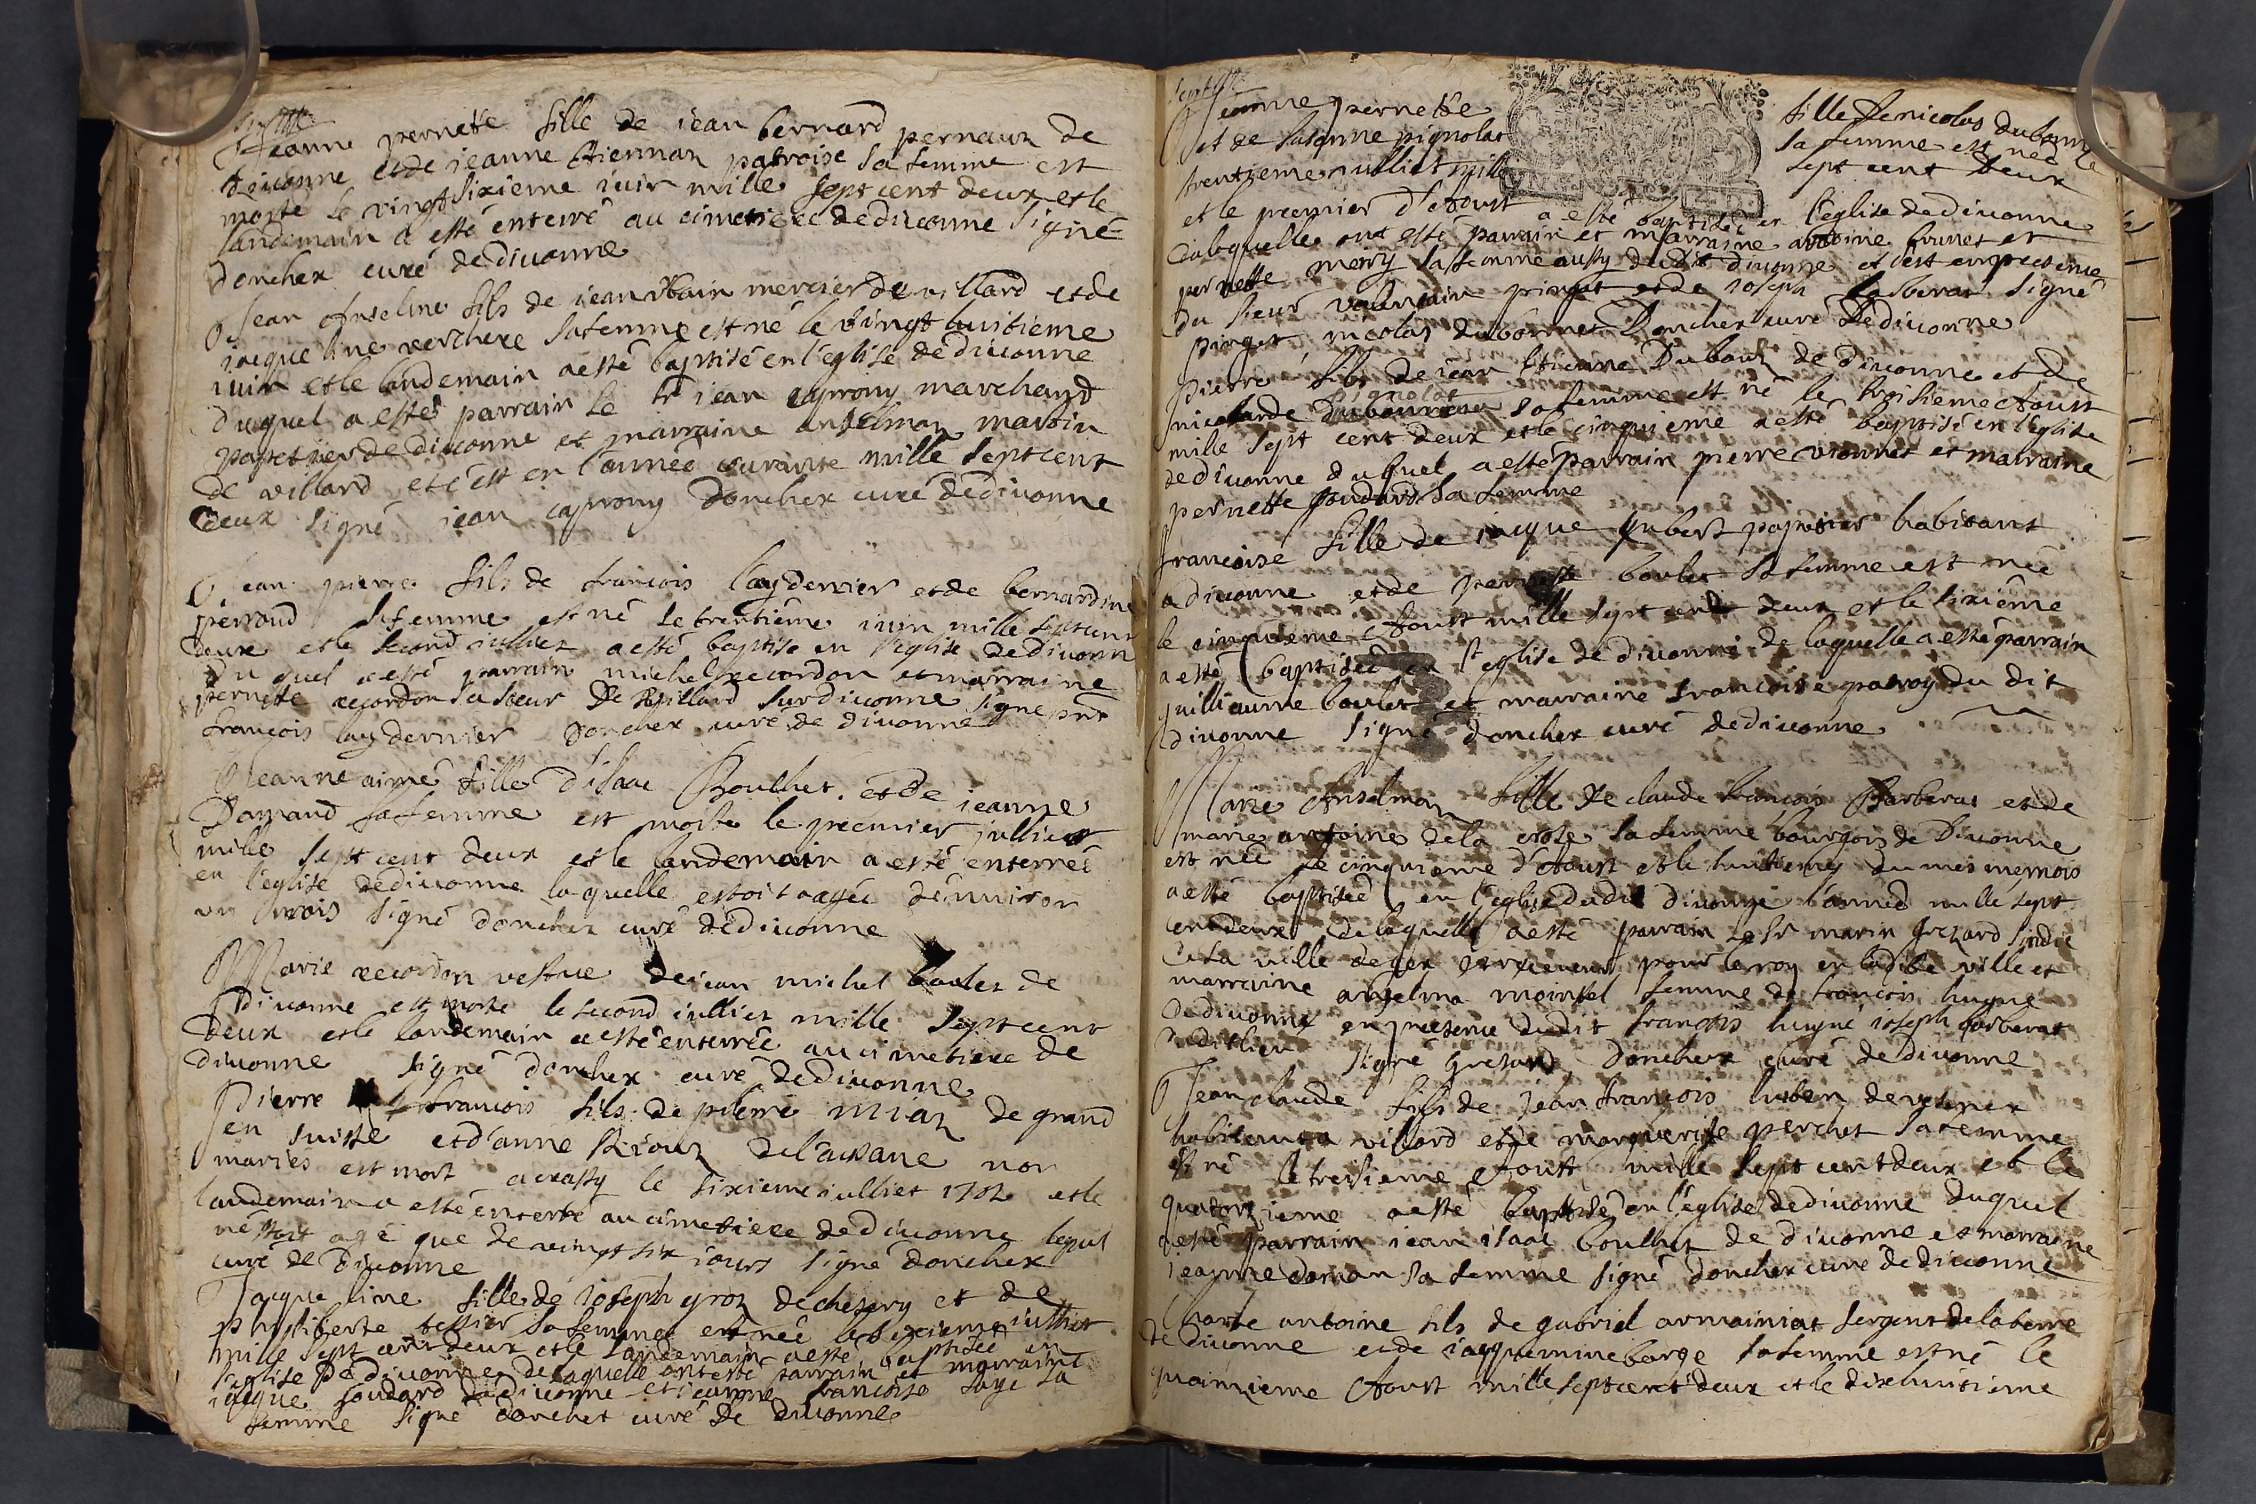 Jeanne pernette fille de iean bernard pernaux de
diuonne et de ieanne Etiennaz patroise sa femme est
morte le vingt sixieme iuin mille sept cent deux et le
landemain a esté enterré au cimetiere de diuonne signé
donchex curé de diuonne
Jean Anselme fils de iean vrbain mercier de villard et de
iacqueline verchere sa femme est né le vingt huitieme
iuin et le landemain a esté baptisé en l'eglise de diuonne
duquel a estés parrain le sr iean caprony marchand
papetier de diuonne et marraine anselmaz martin
de villard et c'est en l'année courante mille sept cent
deux signé iean caprony donchex curé de diuonne
Jean pierre fils de francois laydernier et de bernardine
perroud sa femme est né le trentiéme iuin mille sept cent
deux et le second iulliet a esté baptisé en l'eglise de diuonne
du quel a esté parrain michel recordon et marraine
pernete recordon sa soeur de villard sur diuonne signe pnt
francois laydernier donchex curé de diuonne
Jeanne aimé fille d'isaac Boulhet et de ieanne
Domand sa femme est morte le premier iulliet
mille sept cent deux et le landemain a esté enterreé
en l'eglise de diuonne laquelle estoit agée d'enuiron
un mois signé donchex curé de diuonne
Marie recordon vefue de iean michel boulet de
diuonne est morte le second iulliet mille sept cent
deux et le landemain a esté enterrée au cimetiere de
diuonne signé donchex curé de diuonne
Pierre francois fils de pierre miaz de grand
en suisse et d'anne de lausane non
mariés est mort a crassy le sixieme iulliet 1702 et le
landemain a esté enterré au cimetiere de diuonne lequel
n'estoit agé que de vingt six iours signé donchex
curé de diuonne
Jacqueline fille de ioseph groz de chesery et de
philiberte tessier sa femme est née le sixieme iulliet
mille sept cent deux et le landemain a esté baptisée en
l'eglise de diuonne de laquelle ont esté parrain et marraine
iacque soudard de diuonne et ieanne francoise sage sa
femme signé donchet curé de diuonne
Jeanne pernette fille de nicolas dubornet
et de susanne pignolat sa femme est neé le
trentieme iulliet mille sept cent deux
et le premier d'Aoust a esté baptisée en l'eglise de diuonne
de laquelle ont esté parrain et marraine antoine brunet et
pernette merry sa femme aussy du dit diuonne et c'est en presence
du sieur valentin pinget et de ioseph barberat signé
pinget, nicolas dubornet Donchex curé de diuonne
Pierre fils de iean Etienne Dubout de diuonne et de
pignolat
nicolarde sa femme est né le troisieme Aoust
mille sept cent deux et le cinquieme a esté baptisé en l'eglise
de diuonne duquel a esté parrain pierre vionnet et marraine
pernette soudard sa femme
francoise fille de iacque gubert papetier habitant
a diuonne et de pernette boulet sa femme est neé
le cinquieme Aoust mille sept cent deux et le sixiéme
a esté baptisée en l'eglise de diuonne de laquelle a esté parrain
guilliaume boulet et marraine francoise patroy du dit
diuonne signé donchex curé de diuonne
Marie Anselmaz fille de claude francois Barberat et de
marie antoine de la crote sa femme bourgois de Diuonne
est née le cinquieme d'Aoust et le huitieme du mesme mois
a esté baptisée en l'eglise dudit diuonne l'année mille sept
cent deux de laquelle a esté parrain le sr marin Grezard sindic
de la ville de gex et receueur pour le roy en ladite ville et
marraine anselma moinsel femme de francois hugue
de diuonne en presence dudit francois hugue ioseph barberat
dudit lieu signé Grezard, Donchex curé de diuonne
Jean claude fils de Jean francois huben de vesenex
habitant a villard et de marguerite perchet sa femme
est né le tresieme Aoust mille sept cent deux et le
quatorzieme a esté baptisé en l'eglise de diuonne duquel
a esté parrain iean isaac boulhet de diuonne et marraine
ieanne doman sa femme signé donchex curé de diuonne
Charle antoine fils de gabriel armainiat sergent de la terre
de diuonne et de iacquemine barge sa femme est né le
quainzieme Aoust mille sept cent deux et le dixhuitieme